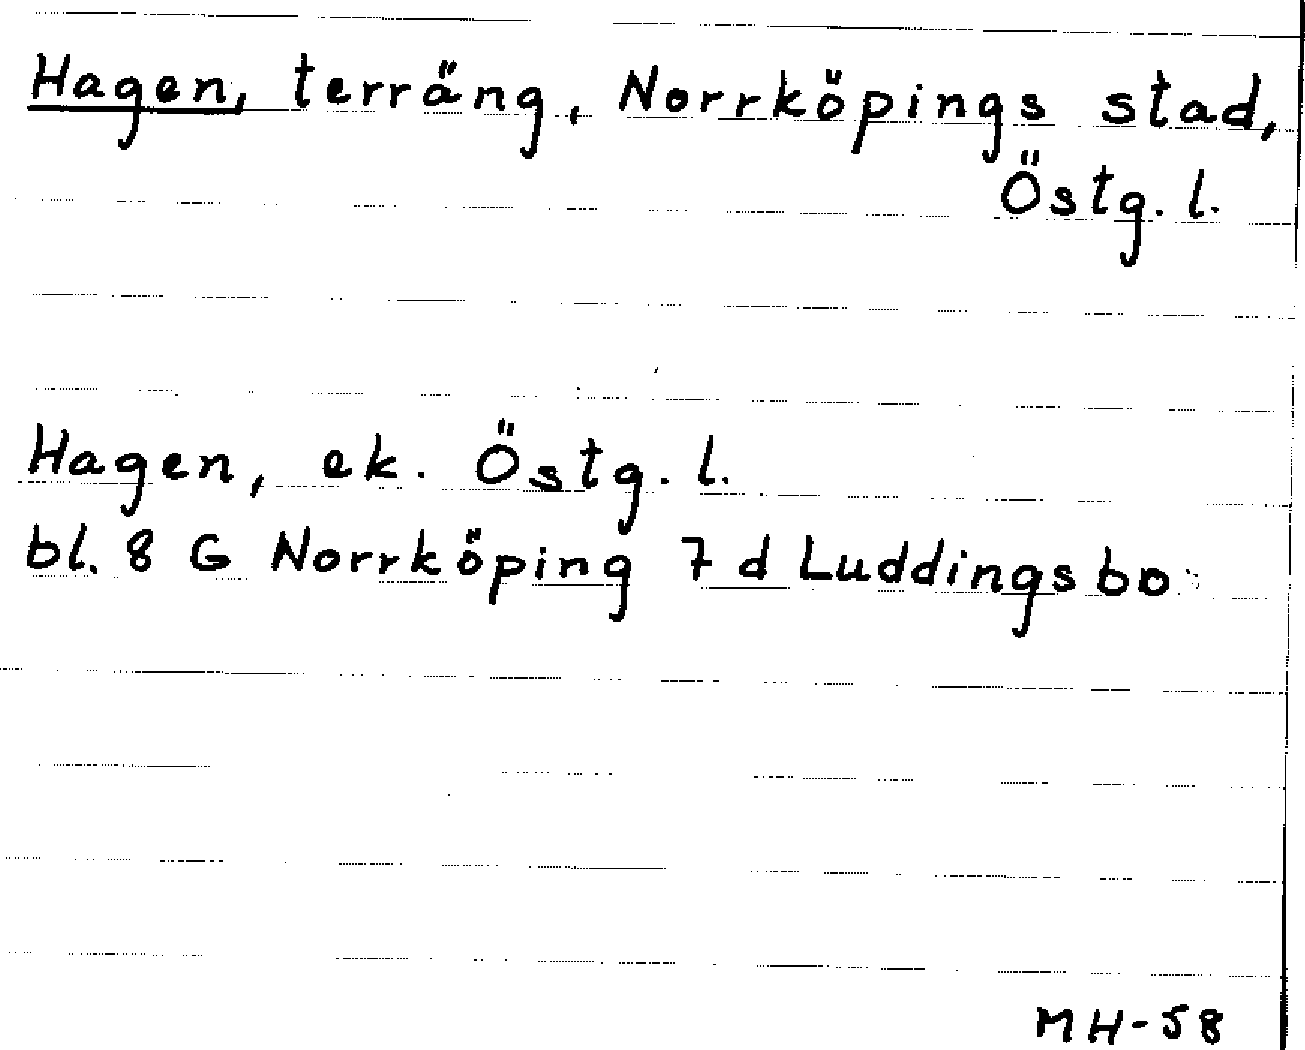 Hagen, terräng, Norrköpings stad,
Östg. l.
Hagen, ek. Östg. l.
bl. 8 G Norrköping 7 d Luddingsbo
MH-58